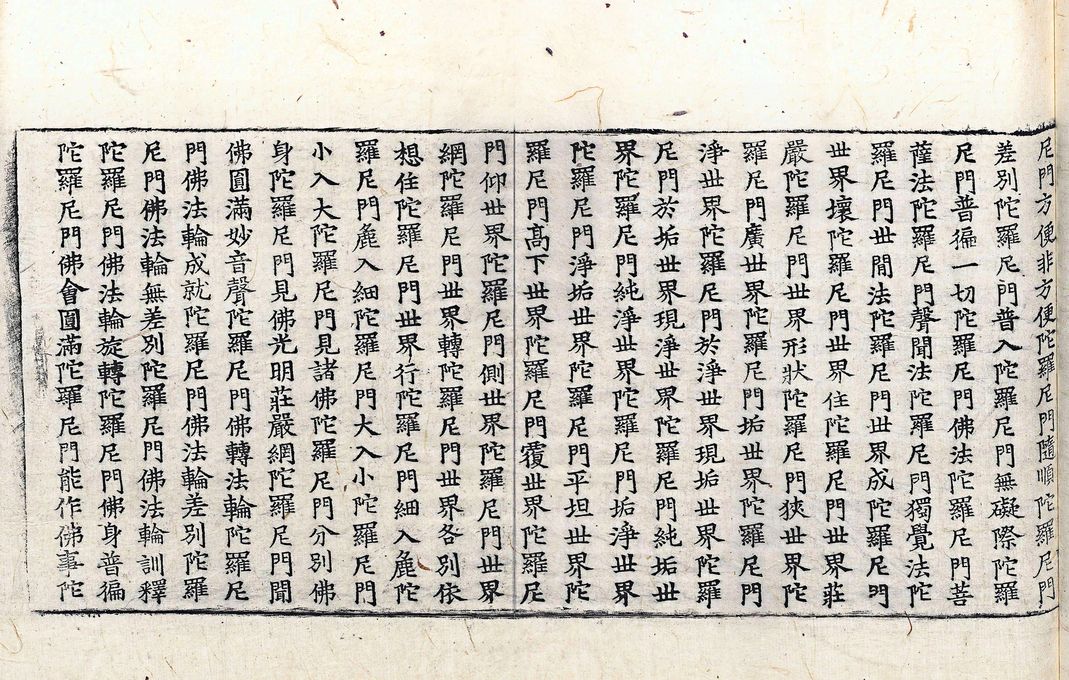 尼門方便非方便陀羅尼門隨順陀羅尼門
差別陀羅尼門普入陀羅尼門無礙際陀羅
尼門普徧一切陀羅尼門佛法陀羅尼門菩
薩法陀羅尼門聲聞法陀羅尼門獨覺法陀
羅尼門世間法陀羅尼門世界成陀羅尼門
世界壞陀羅尼門世界住陀羅尼門世界莊
嚴陀羅尼門世界形狀陀羅尼門狹世界陀
羅尼門廣世界陀羅尼門垢世界陀羅尼門
淨世界陀羅尼門於淨世界現垢世界陀羅
尼門於垢世界現淨世界陀羅尼門純垢世
界陀羅尼門純淨世界陀羅尼門垢淨世界
陀羅尼門淨垢世界陀羅尼門平坦世界陀
羅尼門高下世界陀羅尼門覆世界陀羅尼
門仰世界陀羅尼門側世界陀羅尼門世界
網陀羅尼門世界轉陀羅尼門世界各別依
想住陀羅尼門世界行陀羅尼門細入麁陀
羅尼門麁入細陀羅尼門大入小陀羅尼門
小入大陀羅尼門見諸佛陀羅尼門分別佛
身陀羅尼門見佛光明莊嚴網陀羅尼門聞
佛圓滿妙音聲陀羅尼門佛轉法輪陀羅尼
門佛法輪成就陀羅尼門佛法輪差別陀羅
尼門佛法輪無差別陀羅尼門佛法輪訓釋
陀羅尼門佛法輪旋轉陀羅尼門佛身普徧
陀羅尼門佛會圓滿陀羅尼門能作佛事陀